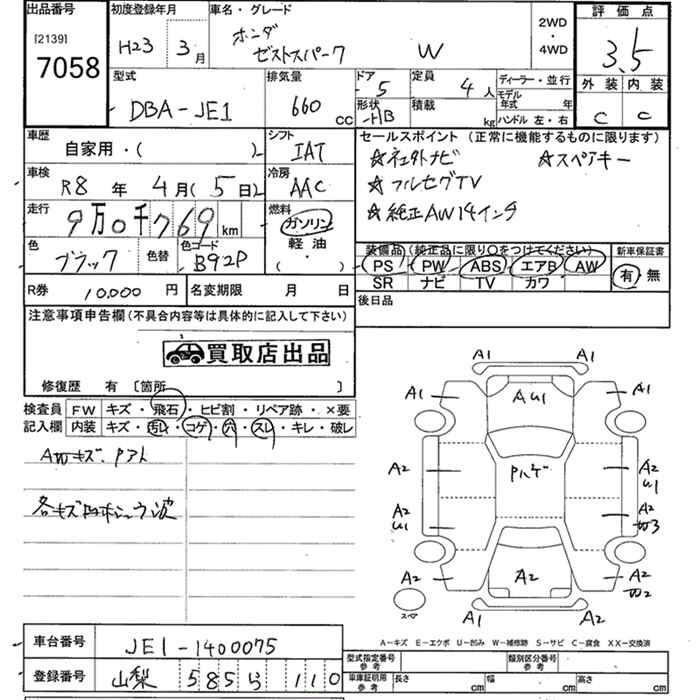 出品番号 初度登録年月 車名・グレード 2WD・4WD 評価点
[2139]
7058
H23 3月
ホンダ
ゼストスパーク W
3.5
型式 排気量 ドア 定員 ディーラー・並行 外装 内装
DBA-JE1 660 cc 5 4人 モデル年式 年 C C
形状 HB 積載 kg ハンドル 左・右
車歴 シフト セールスポイント(正常に機能するものに限ります)
自家用・( ) IAT
☆社外ナビ ☆スペアキー
車検 冷房
R8年 4月(5日) AAC
☆フルセグTV
走行 燃料
9万0千769km ガソリン
☆純正AW14インチ
軽油
( )
色 色替 色コード
ブラック B92P
装備品(純正品に限り○をつけてください) 新車保証書
PS PW ABS エアB AW 有・無
SR ナビ TV カワ
R券 10,000円 名変期限 月 日 後日品
注意事項申告欄(不具合内容等は具体的に記入して下さい)
買取店出品
修復歴 有 〔箇所 〕
検査員 FW キズ・飛石・ヒビ割・リペア跡・×要
記入欄 内装 キズ・汚レ・コゲ・穴・スレ・キレ・破レ
AWキズ、Pアト
A1 A1
A1 AU1 A1
A2 Pハゲ A2
U1
A2 A2
U1 W3
A2 A2 A2
W2
スペア A1 A2
A-キズ E-エクボ U-凹み W-補修跡 S-サビ C-腐食 XX-交換済
車台番号 JE1-1400075
登録番号 山梨 585 ら 110
型式指定番号 参考 類別区分番号 参考
車庫証明用 参考 長さ cm 幅 cm 高さ cm